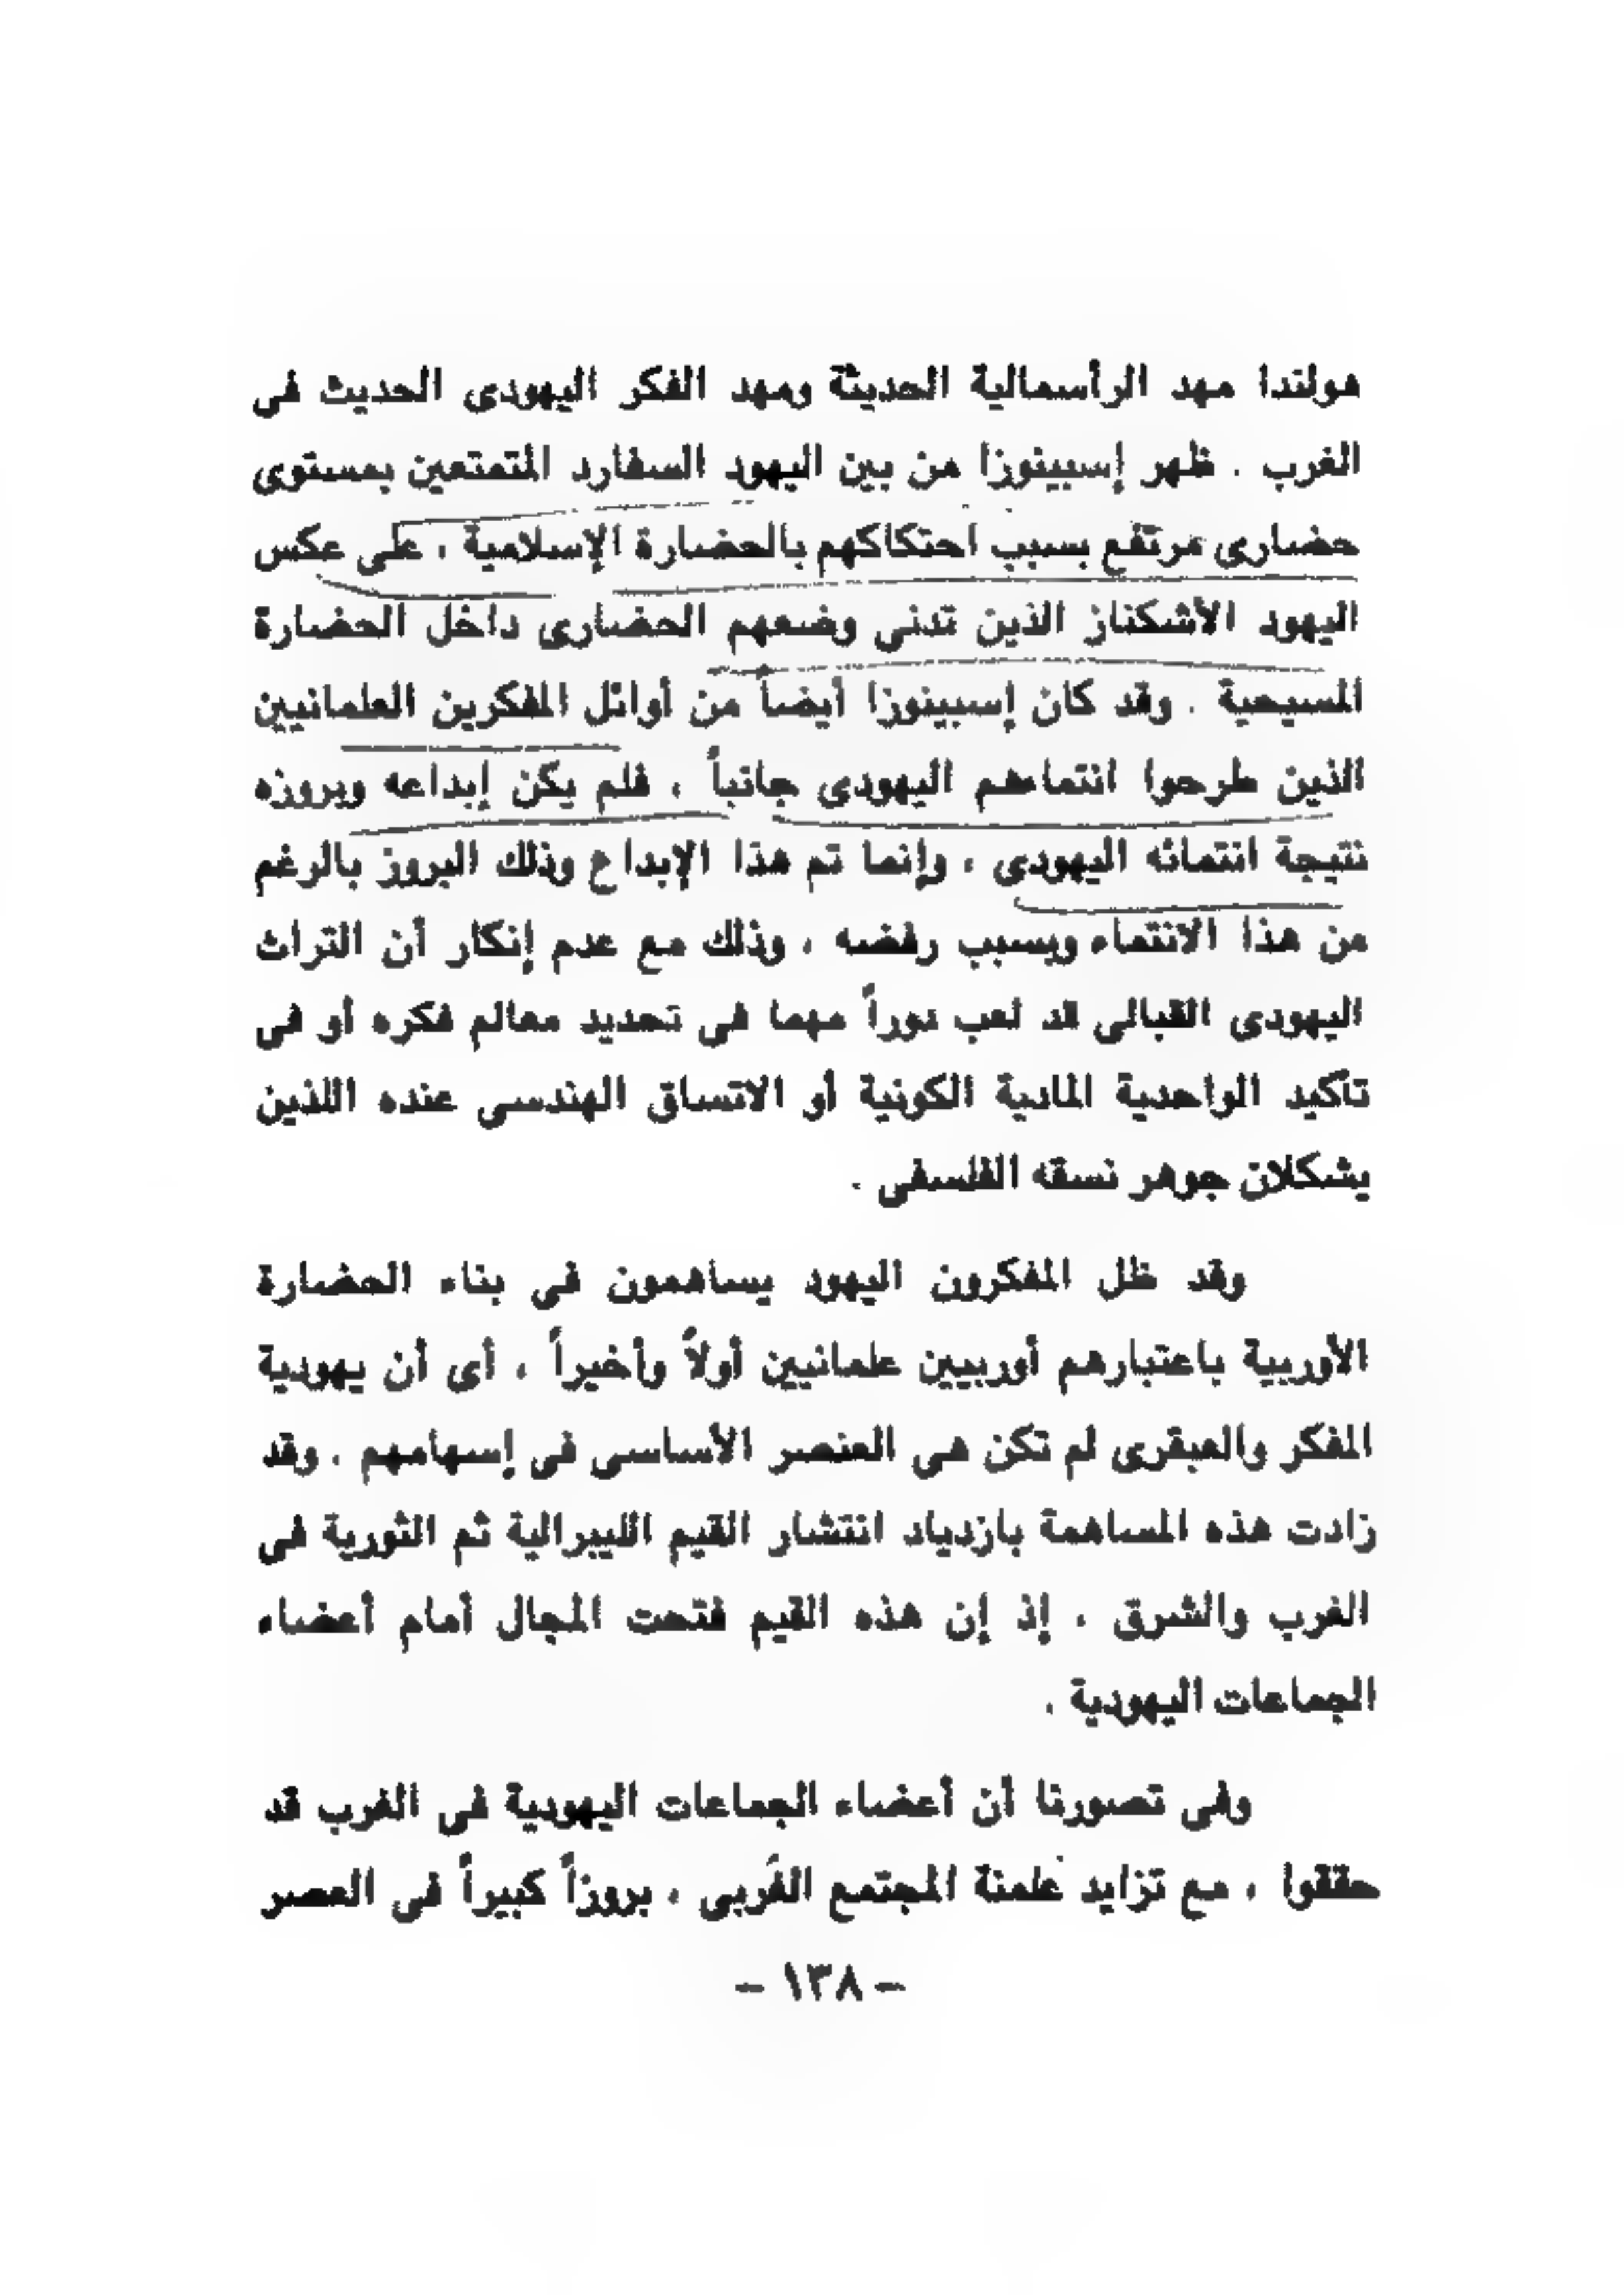 هولندا مهد الرأسمالية الحديثة ومهد الفكر اليهودى الحديث فى
الغرب . ظهر إسبينوزا من بين اليهود السفارد المتمتعين بمستوى
حضارى مرتفع بسبب احتكاكهم بالحضارة الإسلامية ، على عكس
اليهود الأشكناز الذين تدنى وضعهم الحضارى داخل الحضارة
المسيحية . وقد كان إسبينوزا أيضاً من أوائل المفكرين العلمانيين
الذين طرحوا انتماءهم اليهودى جانباً ، فلم يكن إبداعه وبروزه
نتيجة انتمائه اليهودى ، وإنما تم هذا الإبداع وذلك البروز بالرغم
من هذا الانتماء وبسبب رفضه ، وذلك مع عدم إنكار أن التراث
اليهودى القبالى قد لعب دوراً مهما فى تحديد معالم فكره أو فى
تأكيد الواحدية المادية الكونية أو الاتساق الهندسى عنده اللذين
يشكلان جوهر نسقه الفلسفى .
وقد ظل المفكرون اليهود يساهمون فى بناء الحضارة
الأوربية باعتبارهم أوربيين علمانيين أولاً وأخيراً ، أى أن يهودية
المفكر والعبقرى لم تكن هى العنصر الأساسى فى إسهامهم . وقد
زادت هذه المساهمة بازدياد انتشار القيم الليبرالية ثم الثورية فى
الغرب والشرق . إذ إن هذه القيم فتحت المجال أمام أعضاء
الجماعات اليهودية .
وفى تصورنا أن أعضاء الجماعات اليهودية فى الغرب قد
حققوا ، مع تزايد علمنة المجتمع الغربى ، بروزاً كبيراً فى العصر
– ١٣٨ –